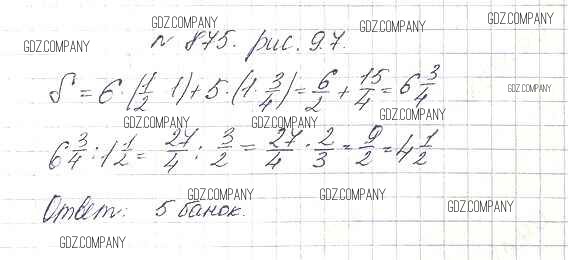 GDZ.COMPANY GDZ.COMPANY GDZ.COMPANY
GDZ.COMPANY
№ 875. рис. 9.7.
S = 6 · (1/2 · 1) + 5 · (1 · 3/4) = 6/2 + 15/4 = 6 3/4
GDZ.COMPANY
GDZ.COMPANY GDZ.COMPANY GDZ.COMPANY
6 3/4 : 1 1/2 = 27/4 : 3/2 = 27/4 · 2/3 = 9/2 = 4 1/2
GDZ.COMPANY GDZ.COMPANY GDZ.COMPANY
Ответ: 5 банок.
GDZ.COMPANY